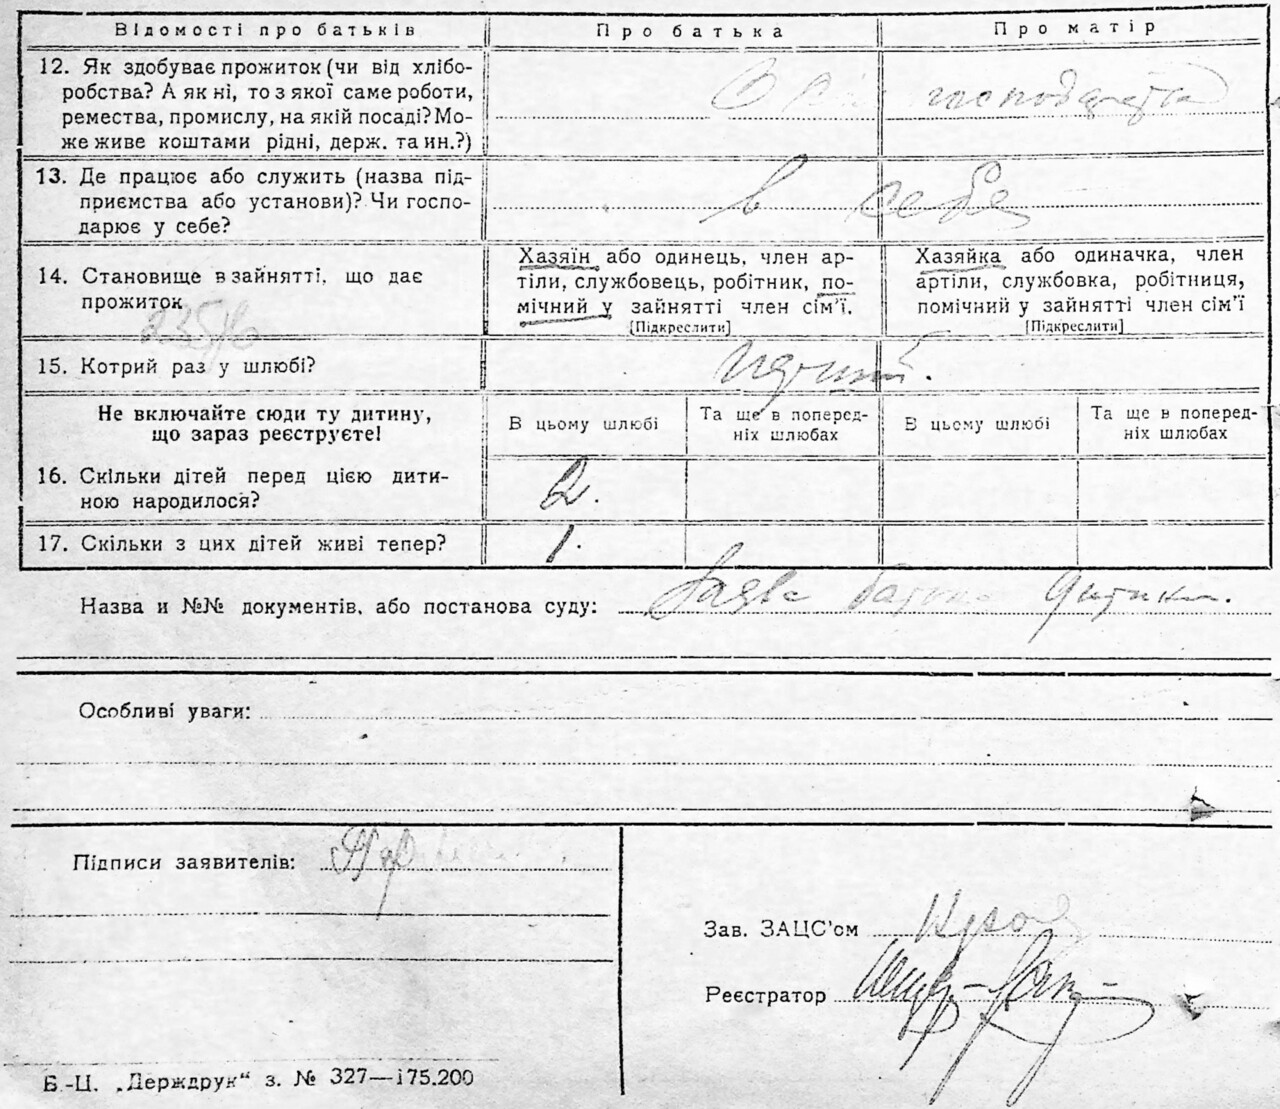 Відомості про батьків
Про батька
Про матір
12. Як здобуває прожиток (чи від хлібо-
робства? А як ні, то з якої саме роботи,
ремества, промислу, на якій посаді? Мо-
же живе коштами рідні, держ. та ин.?)
господарства
13. Де працює або служить (назва під-
приємства або установи)? Чи госпо-
дарює у себе?
в себе
14. Становище в зайнятті, що дає
прожиток
Хазяїн або одинець, член ар-
тіли, службовець, робітник, по-
мічний у зайнятті член сім'ї.
[Підкреслити]
Хазяйка або одиначка, член
артіли, службовка, робітниця,
помічний у зайнятті член сім'ї
[Підкреслити]
15. Котрий раз у шлюбі?
Не включайте сюди ту дитину,
що зараз реєструєте!
В цьому шлюбі
Та ще в поперед-
ніх шлюбах
В цьому шлюбі
Та ще в поперед-
ніх шлюбах
16. Скільки дітей перед цією дити-
ною народилося?
2.
17. Скільки з цих дітей живі тепер?
1.
Назва и №№ документів, або постанова суду: Заява батька дитини.
Особливі уваги:
Підписи заявителів:
Зав. ЗАЦС'ом
Реєстратор
Б.-Ц. „Держдрук" з. № 327—175.200